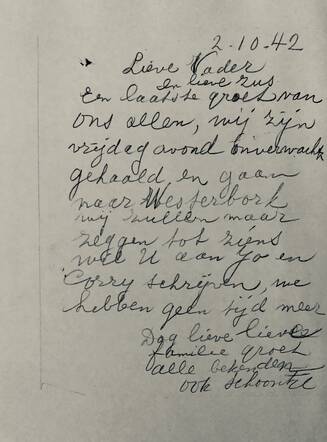 2-10-42
Lieve Vader
en lieve zus
Een laatste groet van
ons allen, wij zijn
vrijdag avond onverwachts
gehaald, en gaan
naar Westerbork
wij zullen maar
zeggen tot ziens
wil U aan Jo en
Corry schrijven, we
hebben geen tijd meer
Dag lieve lieve
familie groet
alle bekenden
ook schoontje